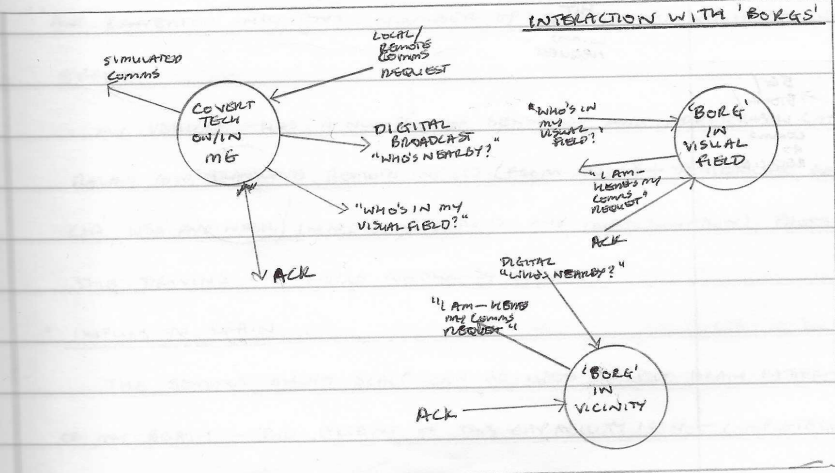 INTERACTION WITH 'BORGS'
LOCAL/
REMOTE
COMMS
REQUEST
SIMULATED
COMMS
COVERT
TECH
ON/IN
ME
DIGITAL
BROADCAST
"WHO'S NEARBY?"
"WHO'S IN MY
VISUAL FIELD?"
ACK
"WHO'S IN
MY
VISUAL
FIELD?"
'BORG'
IN
VISUAL
FIELD
"I AM—
HERE'S MY
COMMS
REQUEST"
ACK
DIGITAL
"WHO'S NEARBY?"
"I AM—HERE'S
MY COMMS
REQUEST"
'BORG'
IN
VICINITY
ACK